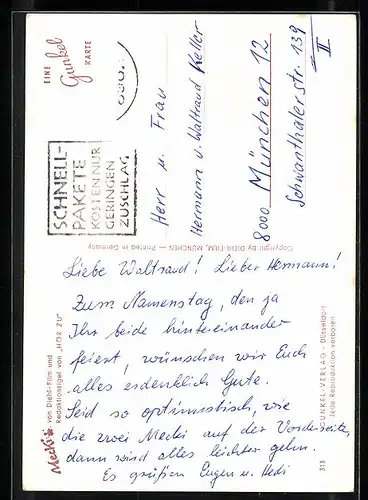 EINE
Gunkel
KARTE
SCHNELL-
PAKETE
KOSTEN NUR
GERINGEN
ZUSCHLAG
Herr u. Frau
Hermann u. Waltraud Keller
8000 München 12
Schwanthalerstr. 139
II
Copyright by DIEHL-FILM, MÜNCHEN — Printed in Germany
Liebe Waltraud! Lieber Hermann!
Zum Namenstag, den ja
Ihr beide hintereinander
feiert, wünschen wir Euch
alles erdenklich Gute.
Seid so optimistisch, wie
die zwei Mecki auf der Vorderseite,
dann wird alles leichter gehn.
Es grüßen Eugen u. Hedi
Mecki von Diehl-Film und
Redaktionsigel von „HÖR ZU“
GUNKEL-VERLAG - Düsseldorf
Jede Reproduktion verboten
315